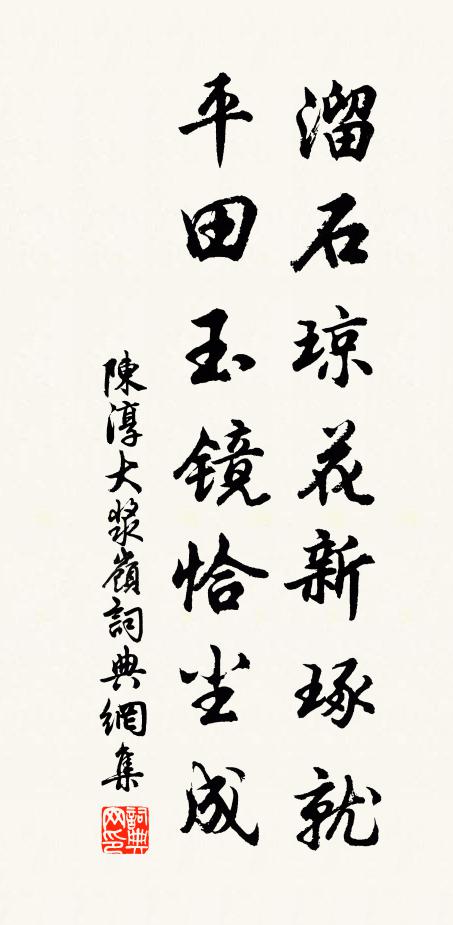 溜石琼花新琢就
平田玉镜恰尘成
陳淳大漿嶺詞典網集
詞典
网印